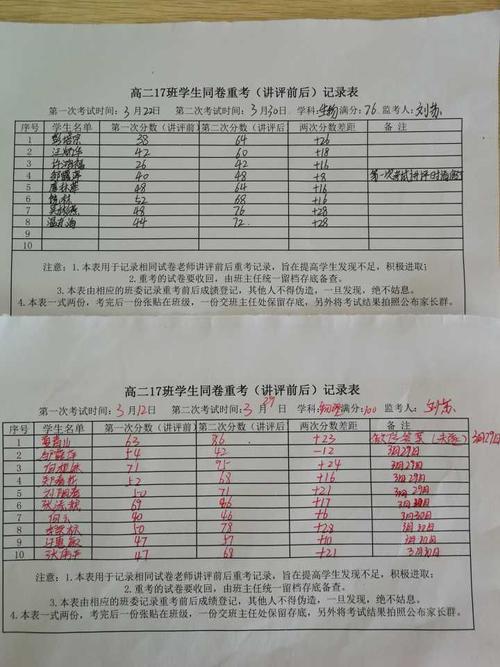 高二17班学生同卷重考（讲评前后）记录表
第一次考试时间：3月22日 第二次考试时间：3月30日 学科：生物 满分：76 监考人：刘芳
序号 学生名单 第一次分数（讲评前） 第二次分数（讲评后） 两次分数差距 备注
1 38 64 +26
2 42 60 +18
3 26 42 +16
4 40 48 +8
5 48 64 +16
6 52 68 +16
7 48 76 +28
8 44 72 +28
9
10
注意：1.本表用于记录相同试卷老师讲评前后重考记录，旨在提高学生发现不足，积极进取；
2.重考的试卷要收回，由班主任统一留档存底备查。
3.本表由相应的班委记录重考前后成绩登记，其他人不得伪造，一旦发现，绝不姑息。
4.本表一式两份，考完后一份张贴在班级，一份交班主任处保留存底，另外将考试结果拍照公布家长群。
高二17班学生同卷重考（讲评前后）记录表
第一次考试时间：3月12日 第二次考试时间：3月29日 学科：物理 满分：100 监考人：
序号 学生名单 第一次分数（讲评前） 第二次分数（讲评后） 两次分数差距 备注
1 63 86 +23 3月29日
2 54 42 -12 3月29日
3 71 95 +24 3月29日
4 52 68 +16 3月29日
5 50 71 +21 3月29日
6 69 86 +17 3月30日
7 40 46 +6 3月30日
8 50 78 +28 3月30日
9 47 57 +10 3月30日
10 47 68 +21 3月30日
注意：1.本表用于记录相同试卷老师讲评前后重考记录，旨在提高学生发现不足，积极进取；
2.重考的试卷要收回，由班主任统一留档存底备查。
3.本表由相应的班委记录重考前后成绩登记，其他人不得伪造，一旦发现，绝不姑息。
4.本表一式两份，考完后一份张贴在班级，一份交班主任处保留存底，另外将考试结果拍照公布家长群。